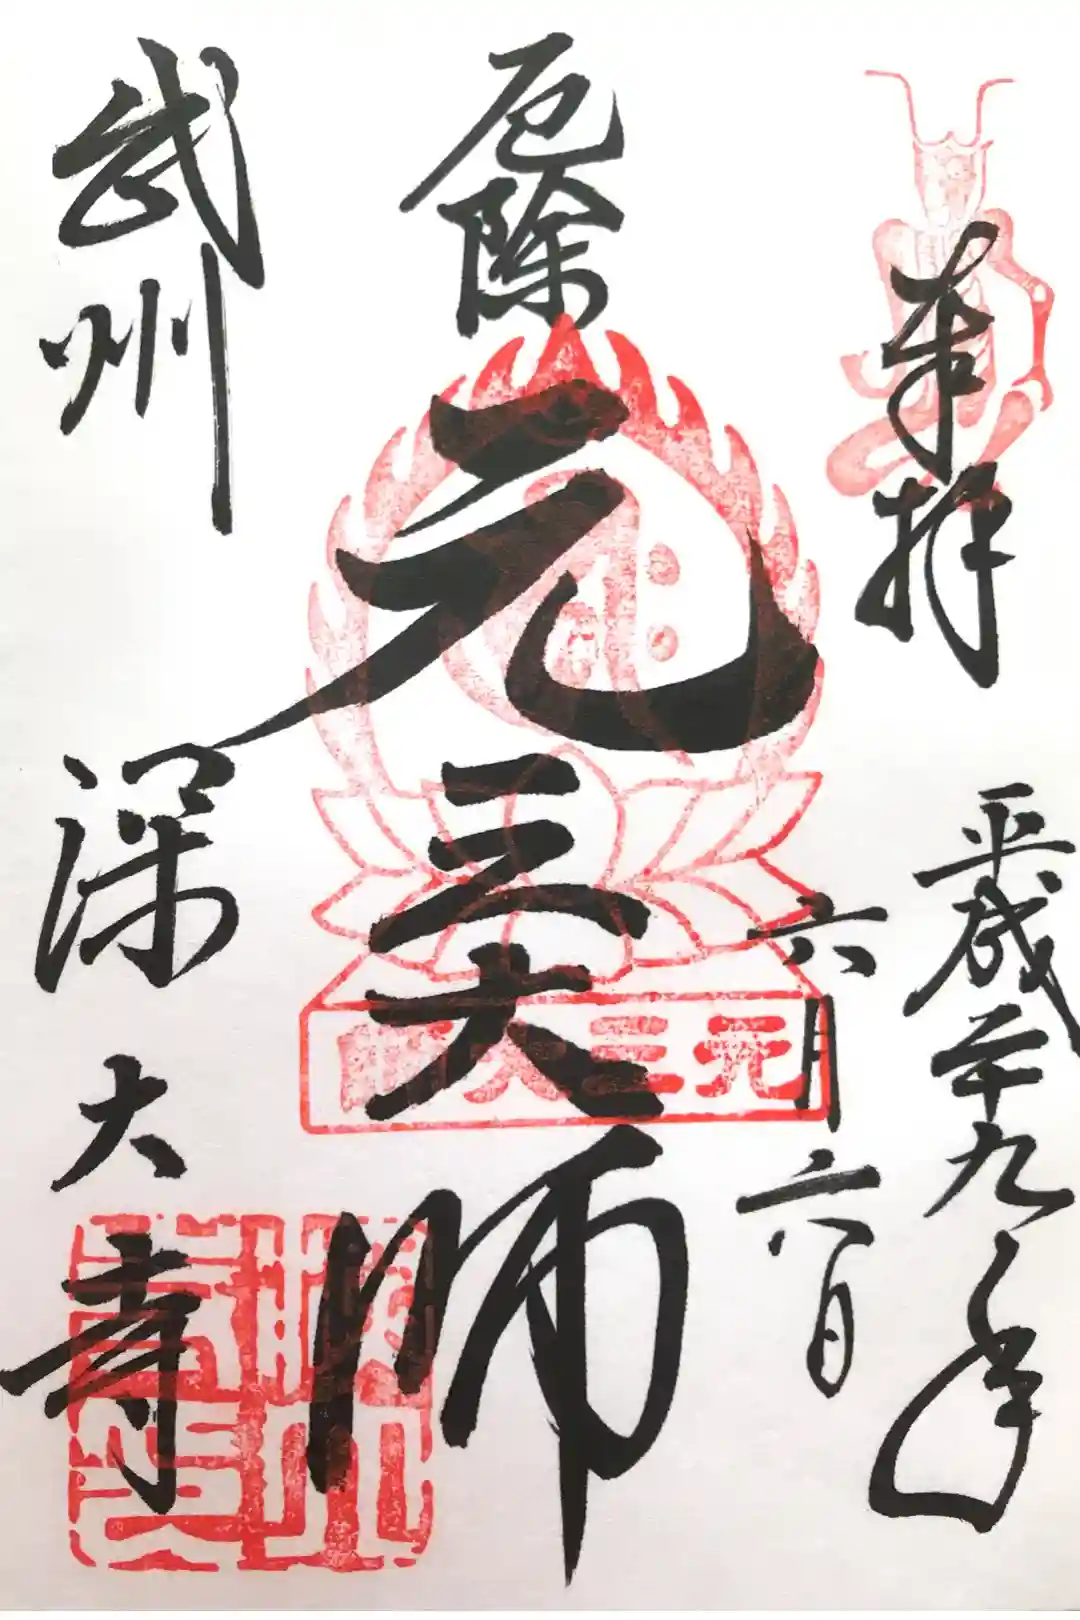 奉拝
平成二十九年
六月六日
厄除
元三大師
元三大師
武州
深大寺